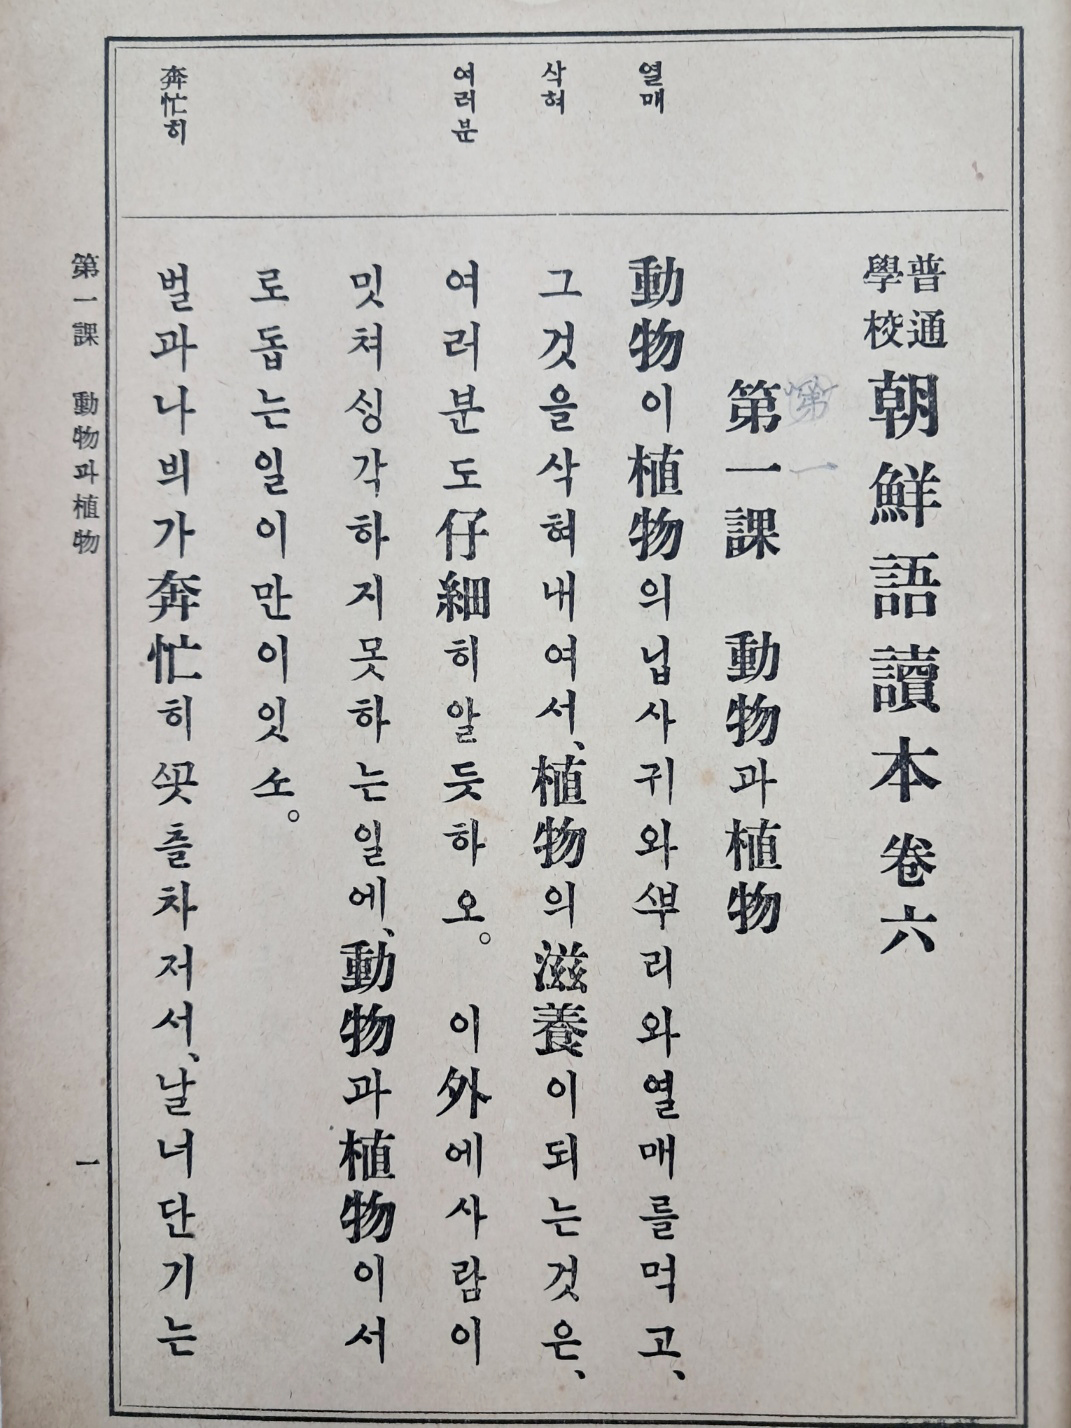 普通學校 朝鮮語讀本 卷六
第一課 動物과植物
第一
열매
삭혀
여러분
奔忙히
動物이植物의닙사귀와ᄲᅮ리와열매를먹고、
그것을삭혀내여서、植物의滋養이되는것은、
여러분도仔細히알듯하오。 이外에사람이
밋쳐싱각하지못하는일에、動物과植物이서
로돕는일이만이잇소。
벌과나븨가奔忙히ᄭᅩᆺ츨차저서、날너단기는
第一課 動物과植物
一